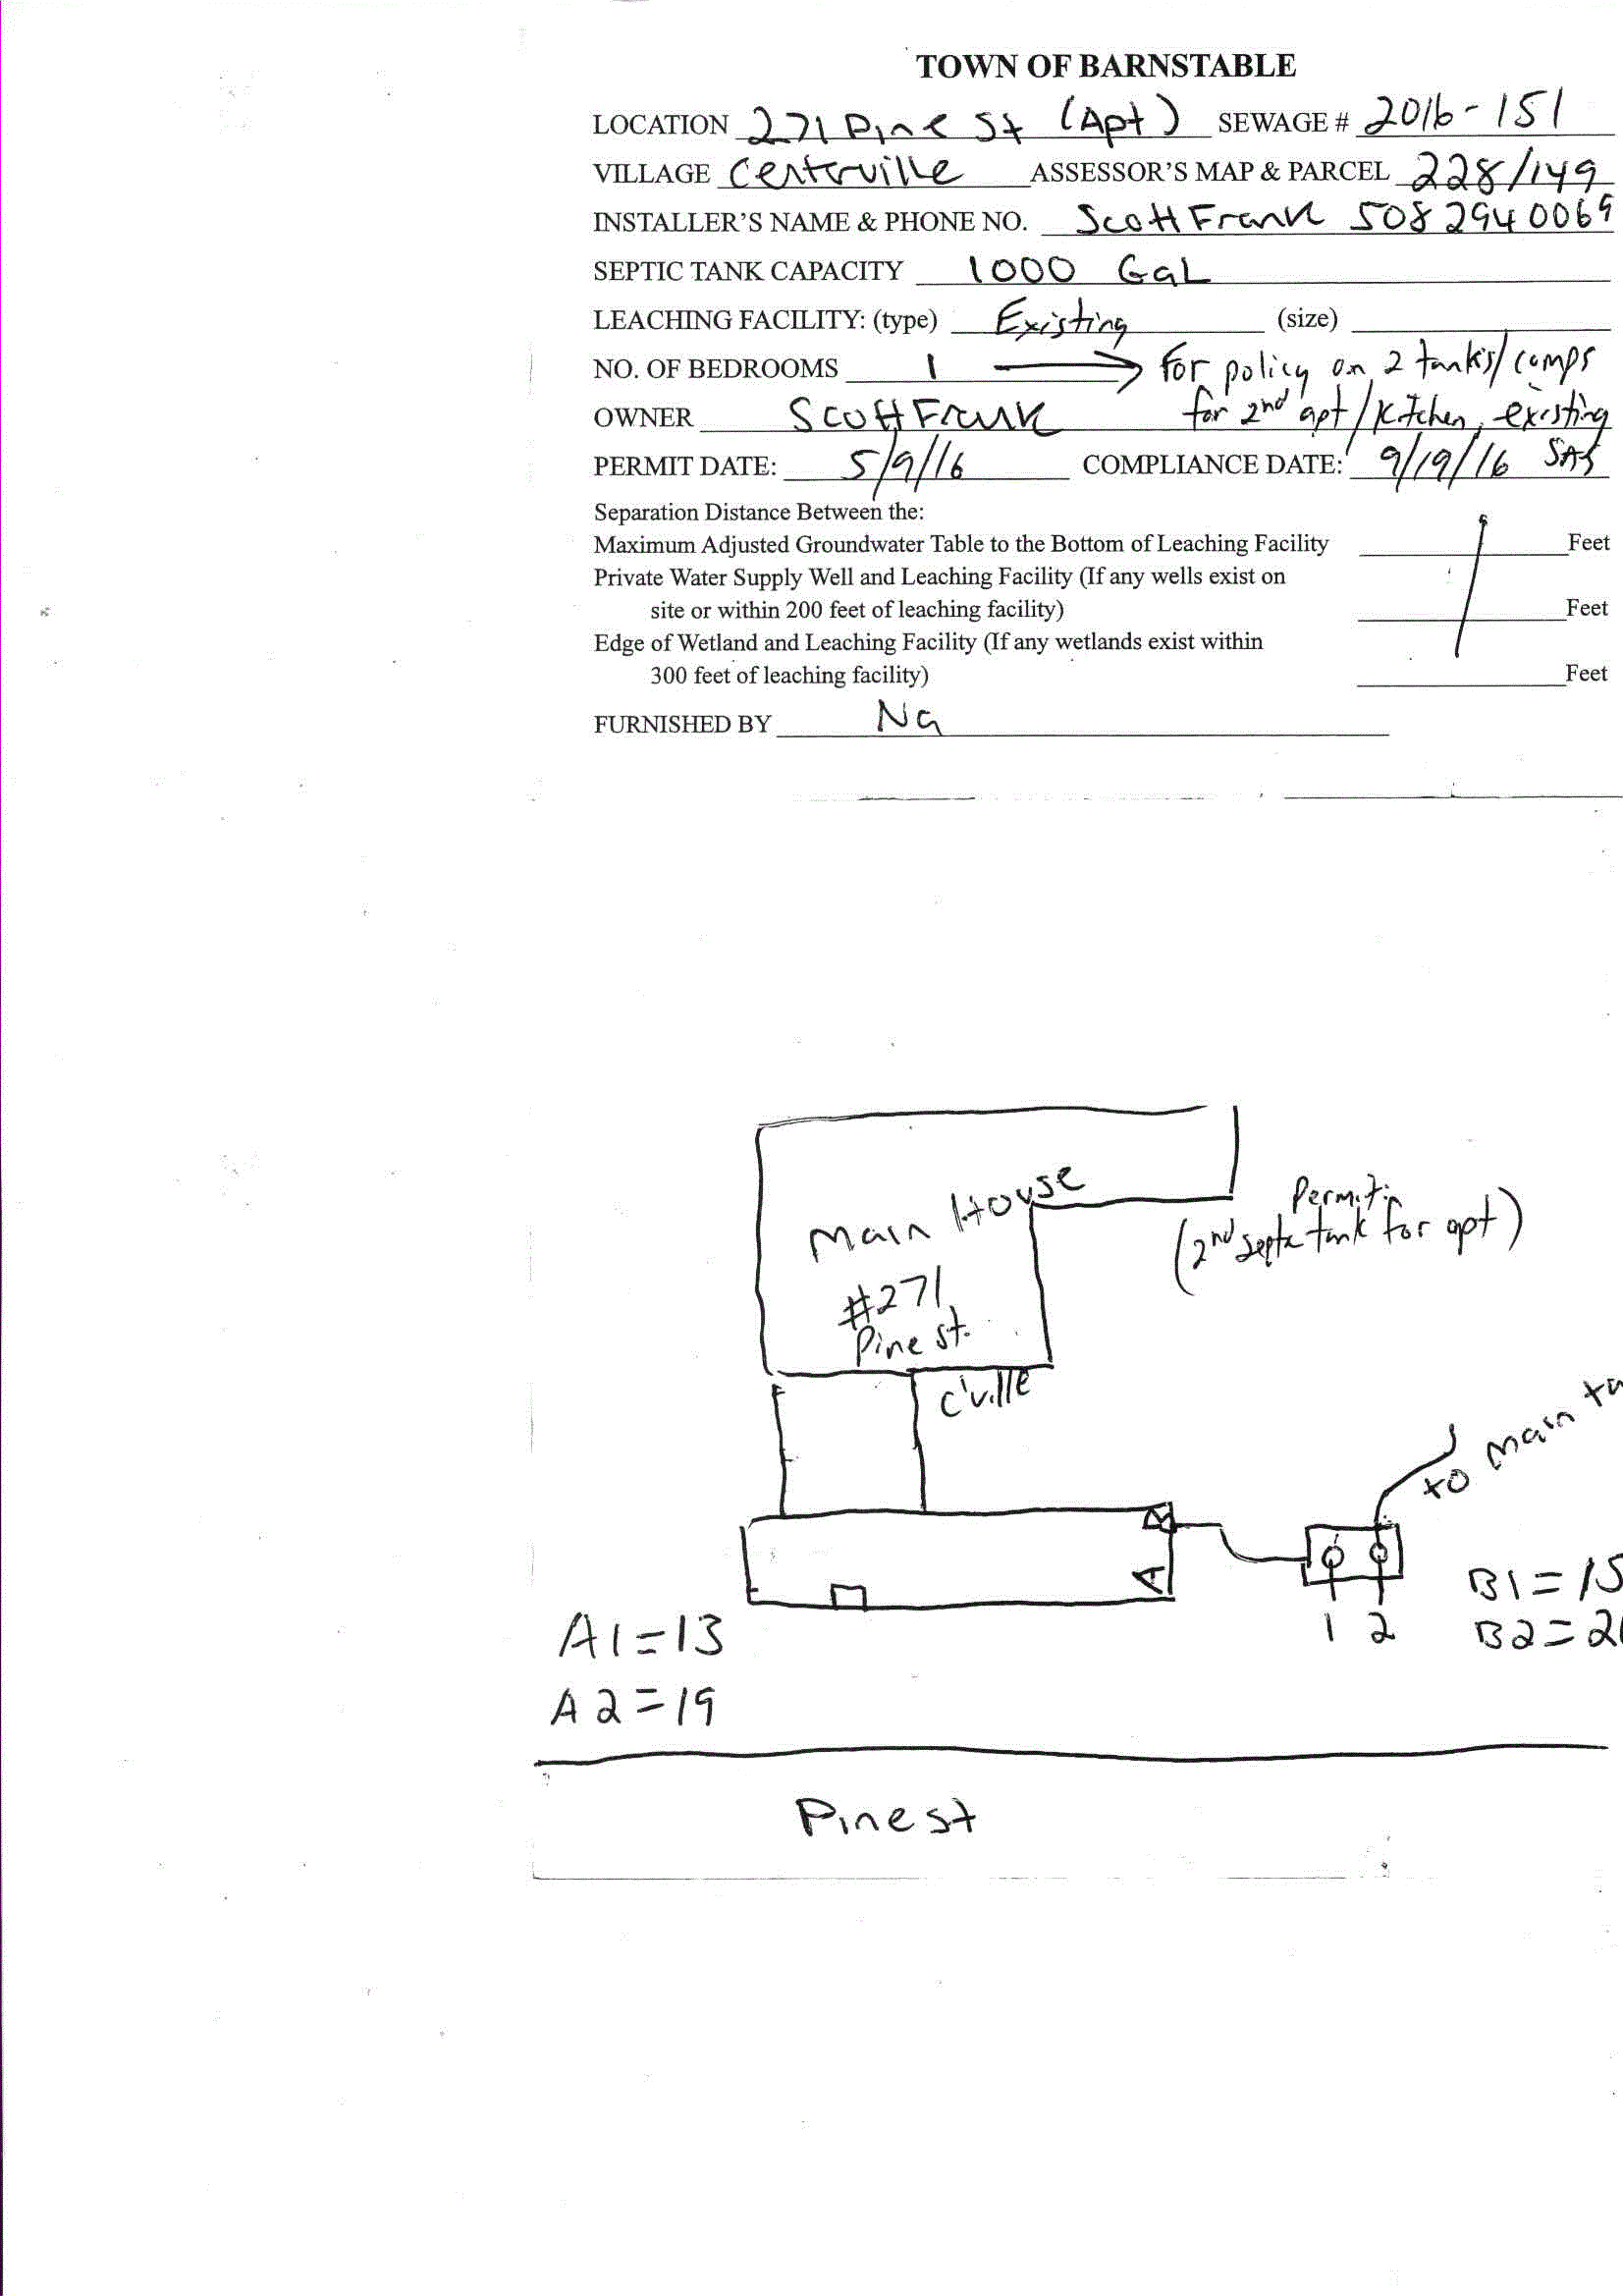 TOWN OF BARNSTABLE
LOCATION 271 Pine St (Apt) SEWAGE # 2016-151
VILLAGE Centerville ASSESSOR'S MAP & PARCEL 228/149
INSTALLER'S NAME & PHONE NO. Scott Frank 508 294 0069
SEPTIC TANK CAPACITY 1000 Gal
LEACHING FACILITY: (type) Existing (size)
NO. OF BEDROOMS 1 → for policy on 2 tanks/comps
OWNER Scott Frank for 2nd apt/kitchen, existing
PERMIT DATE: 5/9/16 COMPLIANCE DATE: 9/19/16 SAS
Separation Distance Between the:
Maximum Adjusted Groundwater Table to the Bottom of Leaching Facility Feet
Private Water Supply Well and Leaching Facility (If any wells exist on
site or within 200 feet of leaching facility) Feet
Edge of Wetland and Leaching Facility (If any wetlands exist within
300 feet of leaching facility) Feet
FURNISHED BY Na
Main House
#271
Pine St.
C'ville
(2nd septic tank for apt)
to Main
A
1 2
B1=15
B2=2
A1=13
A2=19
Pine St